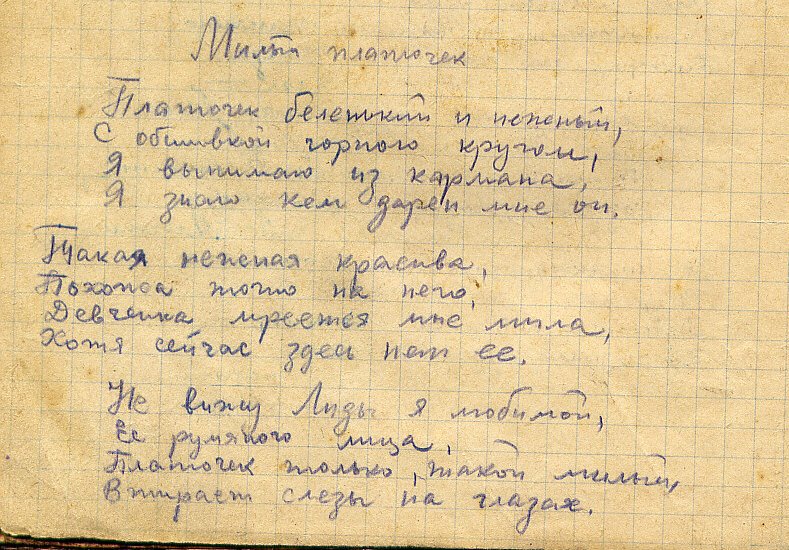 Милый платочек
Платочек беленький и неженый,
С обшивкой чорного кругом,
Я вынимаю из кармана,
Я знаю кем дарен мне он.
Такая неженая красива,
Похожа точно на него,
Девченка мреется мне мила,
Хотя сейчас здесь нет ее.
Не вижу Лиды я любимой,
Ее румяного лица,
Платочек только, такой милый,
Втирает слезы на глазах.